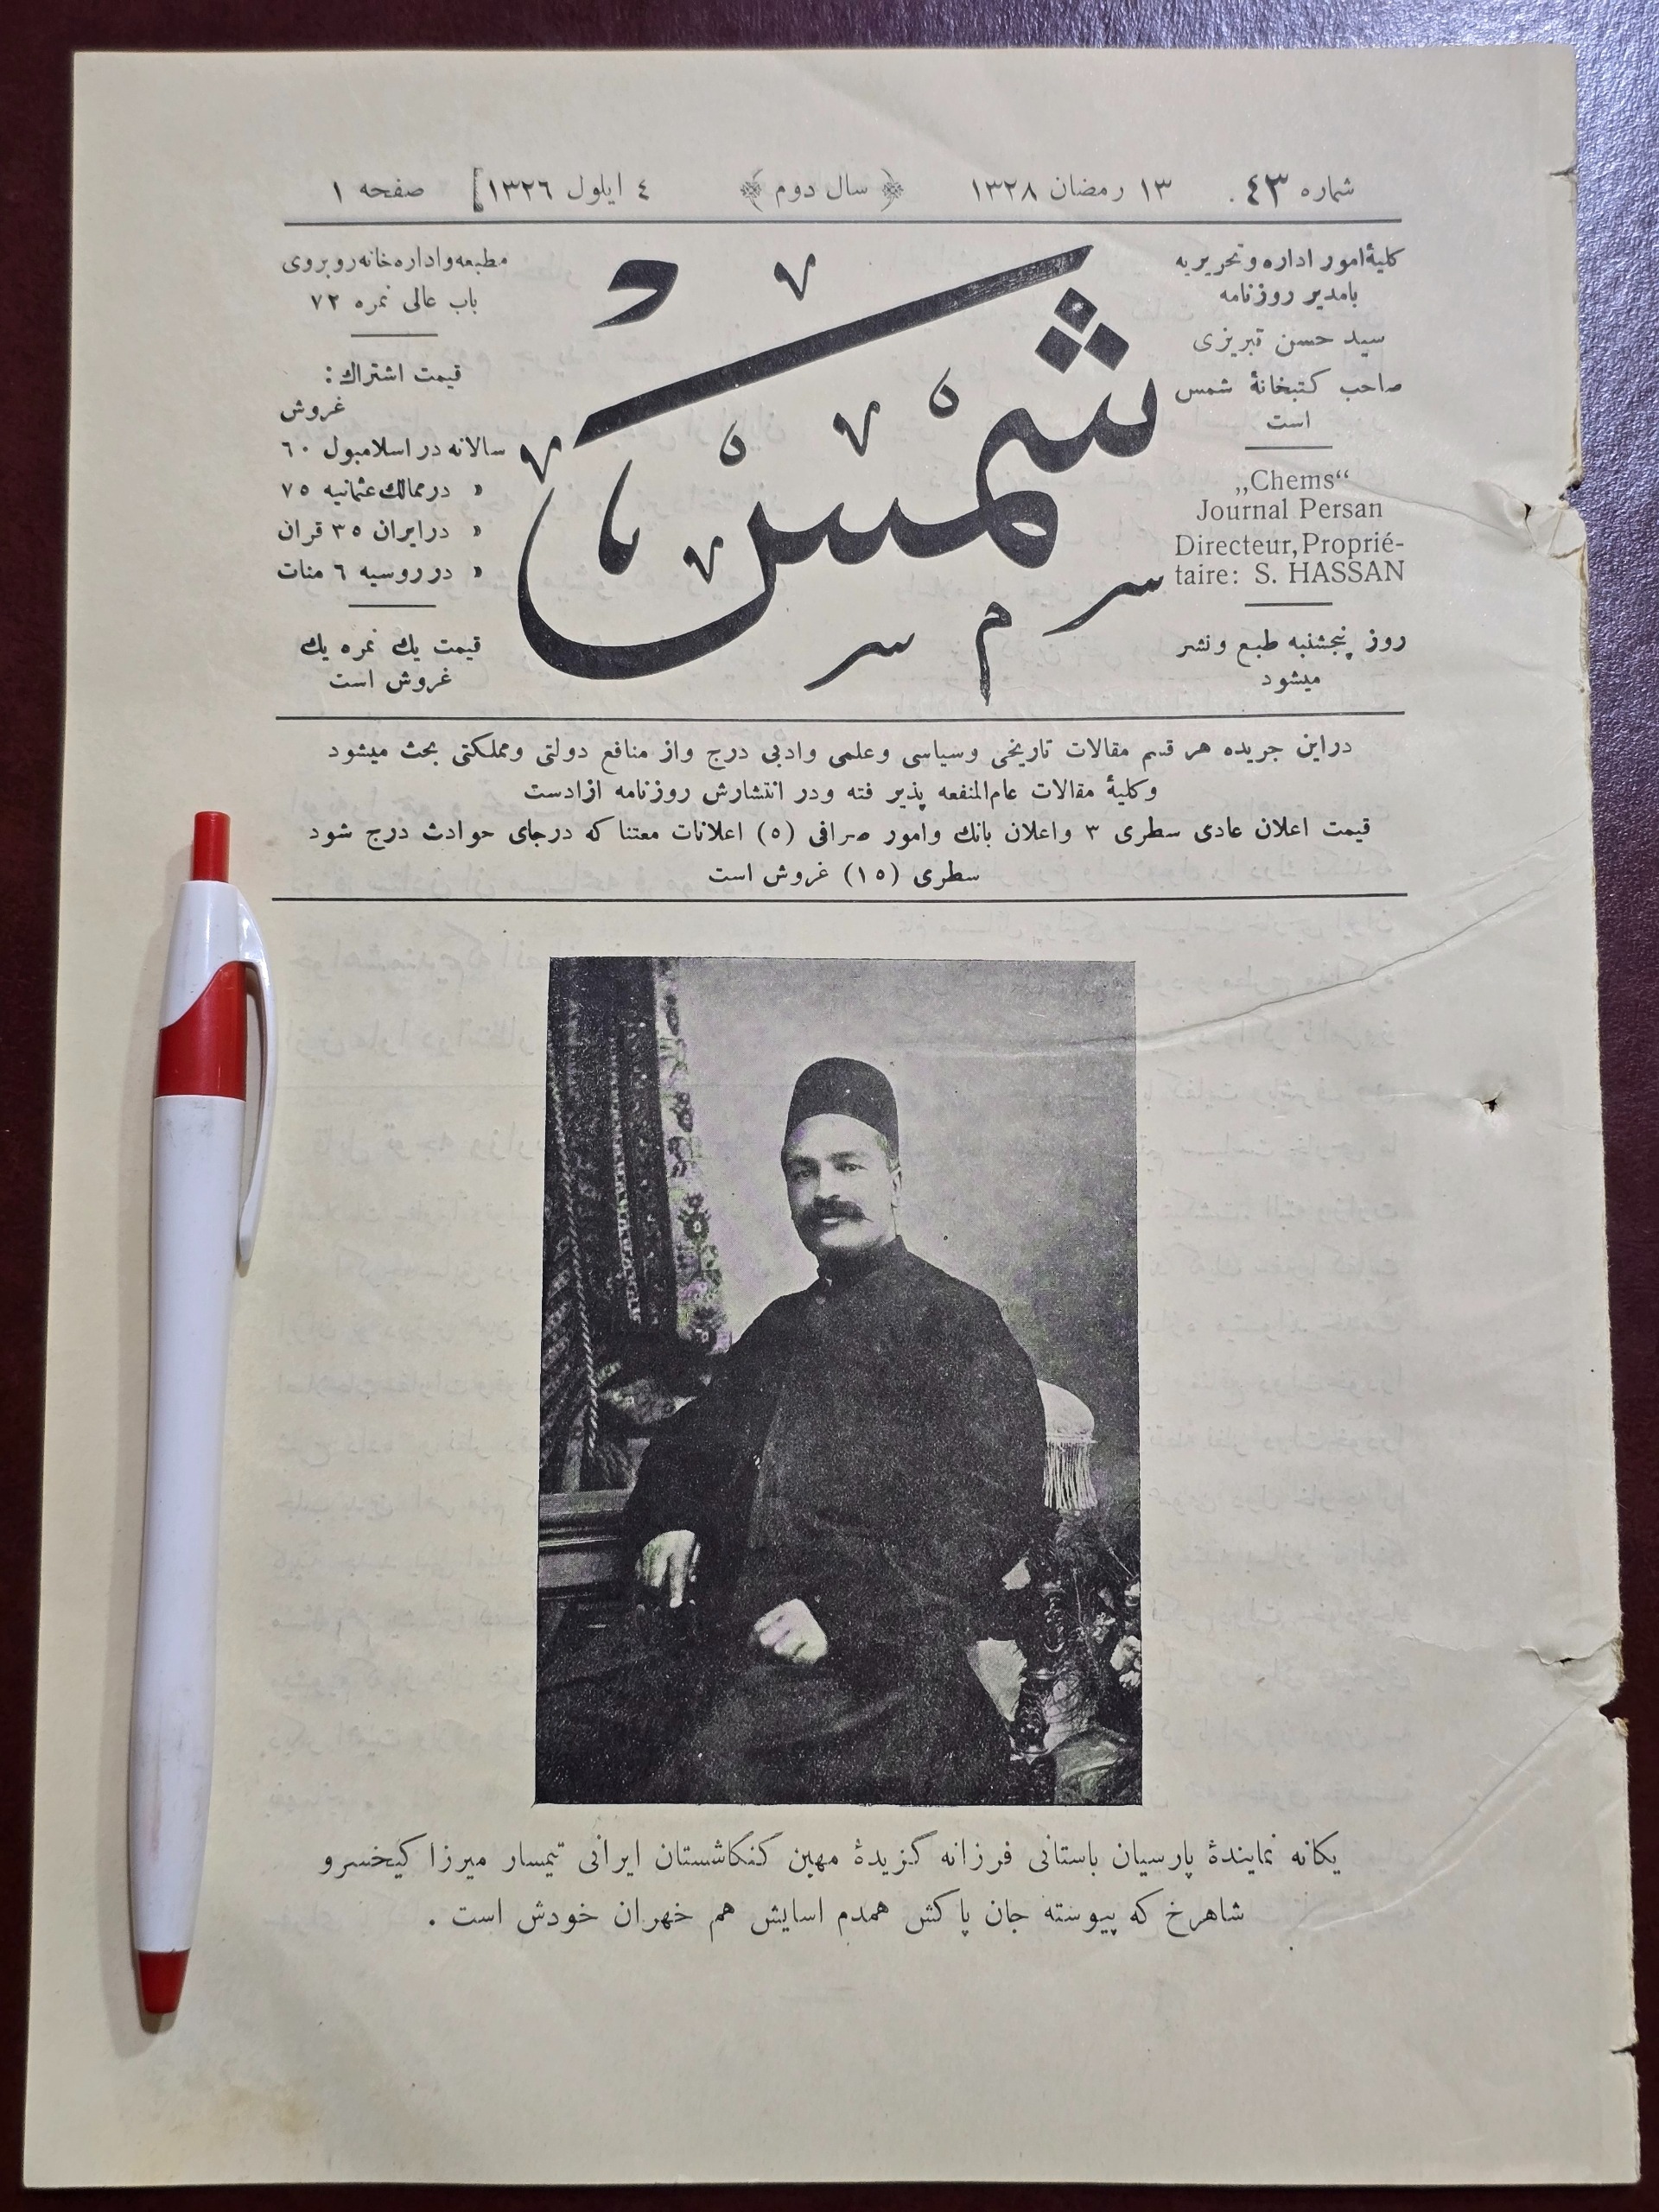 شماره ٤٣. ١٣ رمضان ١٣٢٨ ﴿ سال دوم ﴾ ٤ ايلول ١٣٢٦] صفحه ١
كلیهٔ امور اداره وتحریریه
بامدیر روزنامه
سید حسن تبریزی
صاحب كتبخانهٔ شمس
است
„Chems“
Journal Persan
Directeur, Proprié-
taire: S. HASSAN
روز پنجشنبه طبع ونشر
میشود
شمس
مطبعه واداره خانه روبروی
باب عالی نمره ٧٢
قیمت اشتراك :
غروش
سالانه در اسلامبول ٦٠
» در ممالك عثمانیه ٧٥
» در ایران ٣٥ قران
» در روسیه ٦ منات
قیمت یك نمره یك
غروش است
دراین جریده هر قسم مقالات تاریخی وسیاسی وعلمی وادبی درج واز منافع دولتی ومملكتی بحث میشود
وكلیهٔ مقالات عام‌المنفعه پذیر فته ودر انتشارش روزنامه ازادست
قیمت اعلان عادی سطری ٣ واعلان بانك وامور صرافی (٥) اعلانات معتنا كه درجای حوادث درج شود
سطری (١٥) غروش است
یكانه نمایندهٔ پارسیان باستانی فرزانه گزیدهٔ مهین كنكاشستان ایرانی تیمسار میرزا كیخسرو
شاهرخ كه پیوسته جان پاكش همدم اسایش هم خهران خودش است .